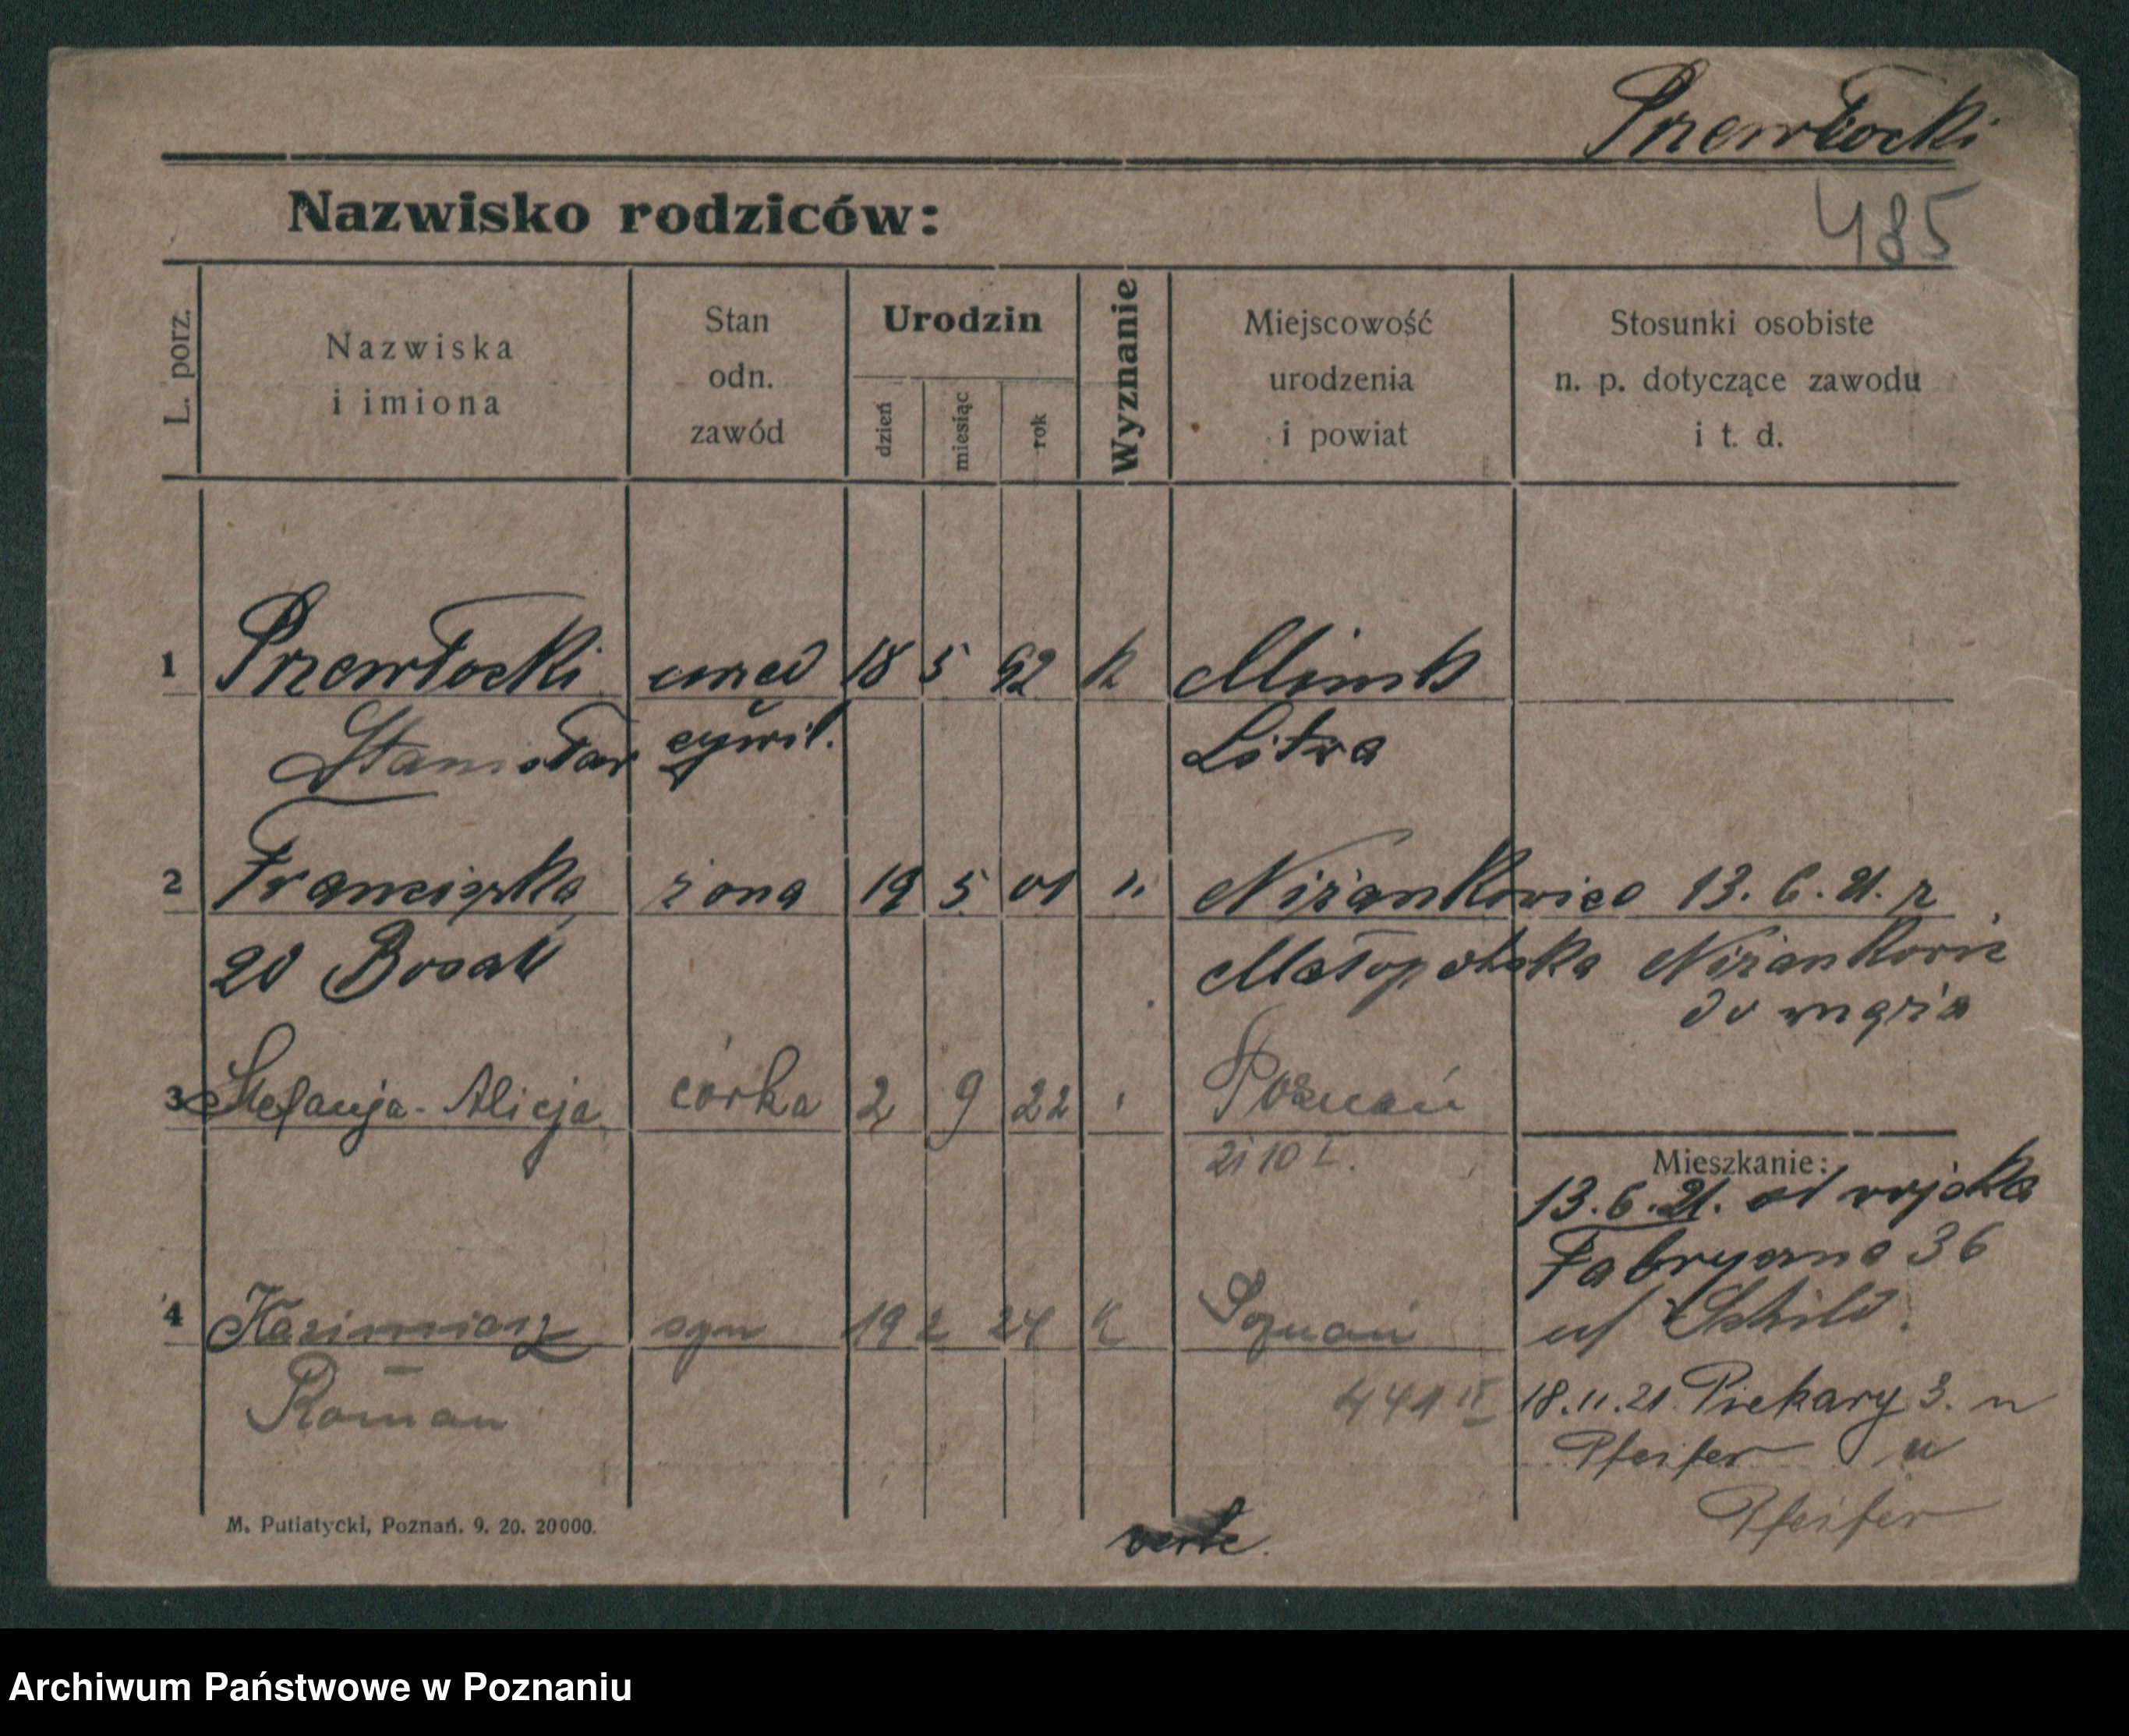 Przewłocki
485
Nazwisko rodziców:
L. porz.
Nazwiska
i imiona
Stan
odn.
zawód
Urodzin
dzień
miesiąc
rok
Wyznanie
Miejscowość
urodzenia
i powiat
Stosunki osobiste
n. p. dotyczące zawodu
i t. d.
1 Przewłocki urzed 18 5 92 k Minsk
Stanisław cywil. Litwa
2 Franciszka żona 19 5 01 " Niżankowice 13. 6. 21. z
zd Bosak Małopolska Niżankowic
do męża
3 Stefanja - Alicja córka 2 9 22 " Poznań
2110 I.
Mieszkanie:
13.6.21. od wojska
Fabryczna 36
u/ Schild.
4 Kazimierz syn 19 2 24 k Poznań
Roman 441 II
18.11.21. Piekary 3. u
Pfeifer u
Pfeifer
M. Putiatycki, Poznań. 9. 20. 20000.
verte.
Archiwum Państwowe w Poznaniu